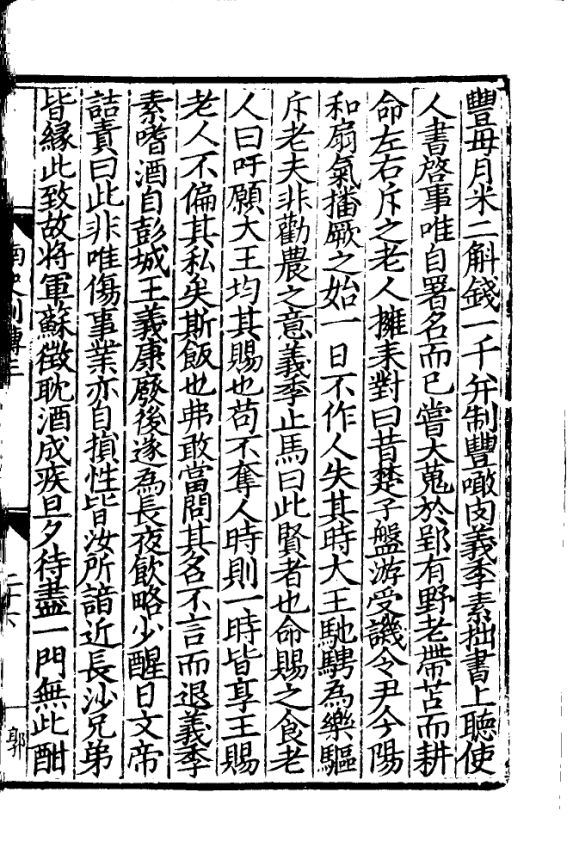 豐毋月米二斛錢一千并制豐噉肉義季素拙書上聽使
人書啓事唯自署名而已嘗大蒐於郢有野老帶苫而耕
命左右斥之老人擁耒對曰昔楚子盤游受譏令尹今陽
和扇氣播厥之始一日不作人失其時大王馳騁為樂驅
斥老夫非勸農之意義季止馬曰此賢者也命賜之食老
人曰吁願大王均其賜也苟不奪人時則一時皆享王賜
老人不偏其私矣斯飯也弗敢當問其名不言而退義季
素嗜酒自彭城王義康廢後遂為長夜飲略少醒日文帝
詰責曰此非唯傷事業亦自損性皆汝所諳近長沙兄弟
皆緣此致故將軍蘇徵耽酒成疾旦夕待盡一門無此酣
郭